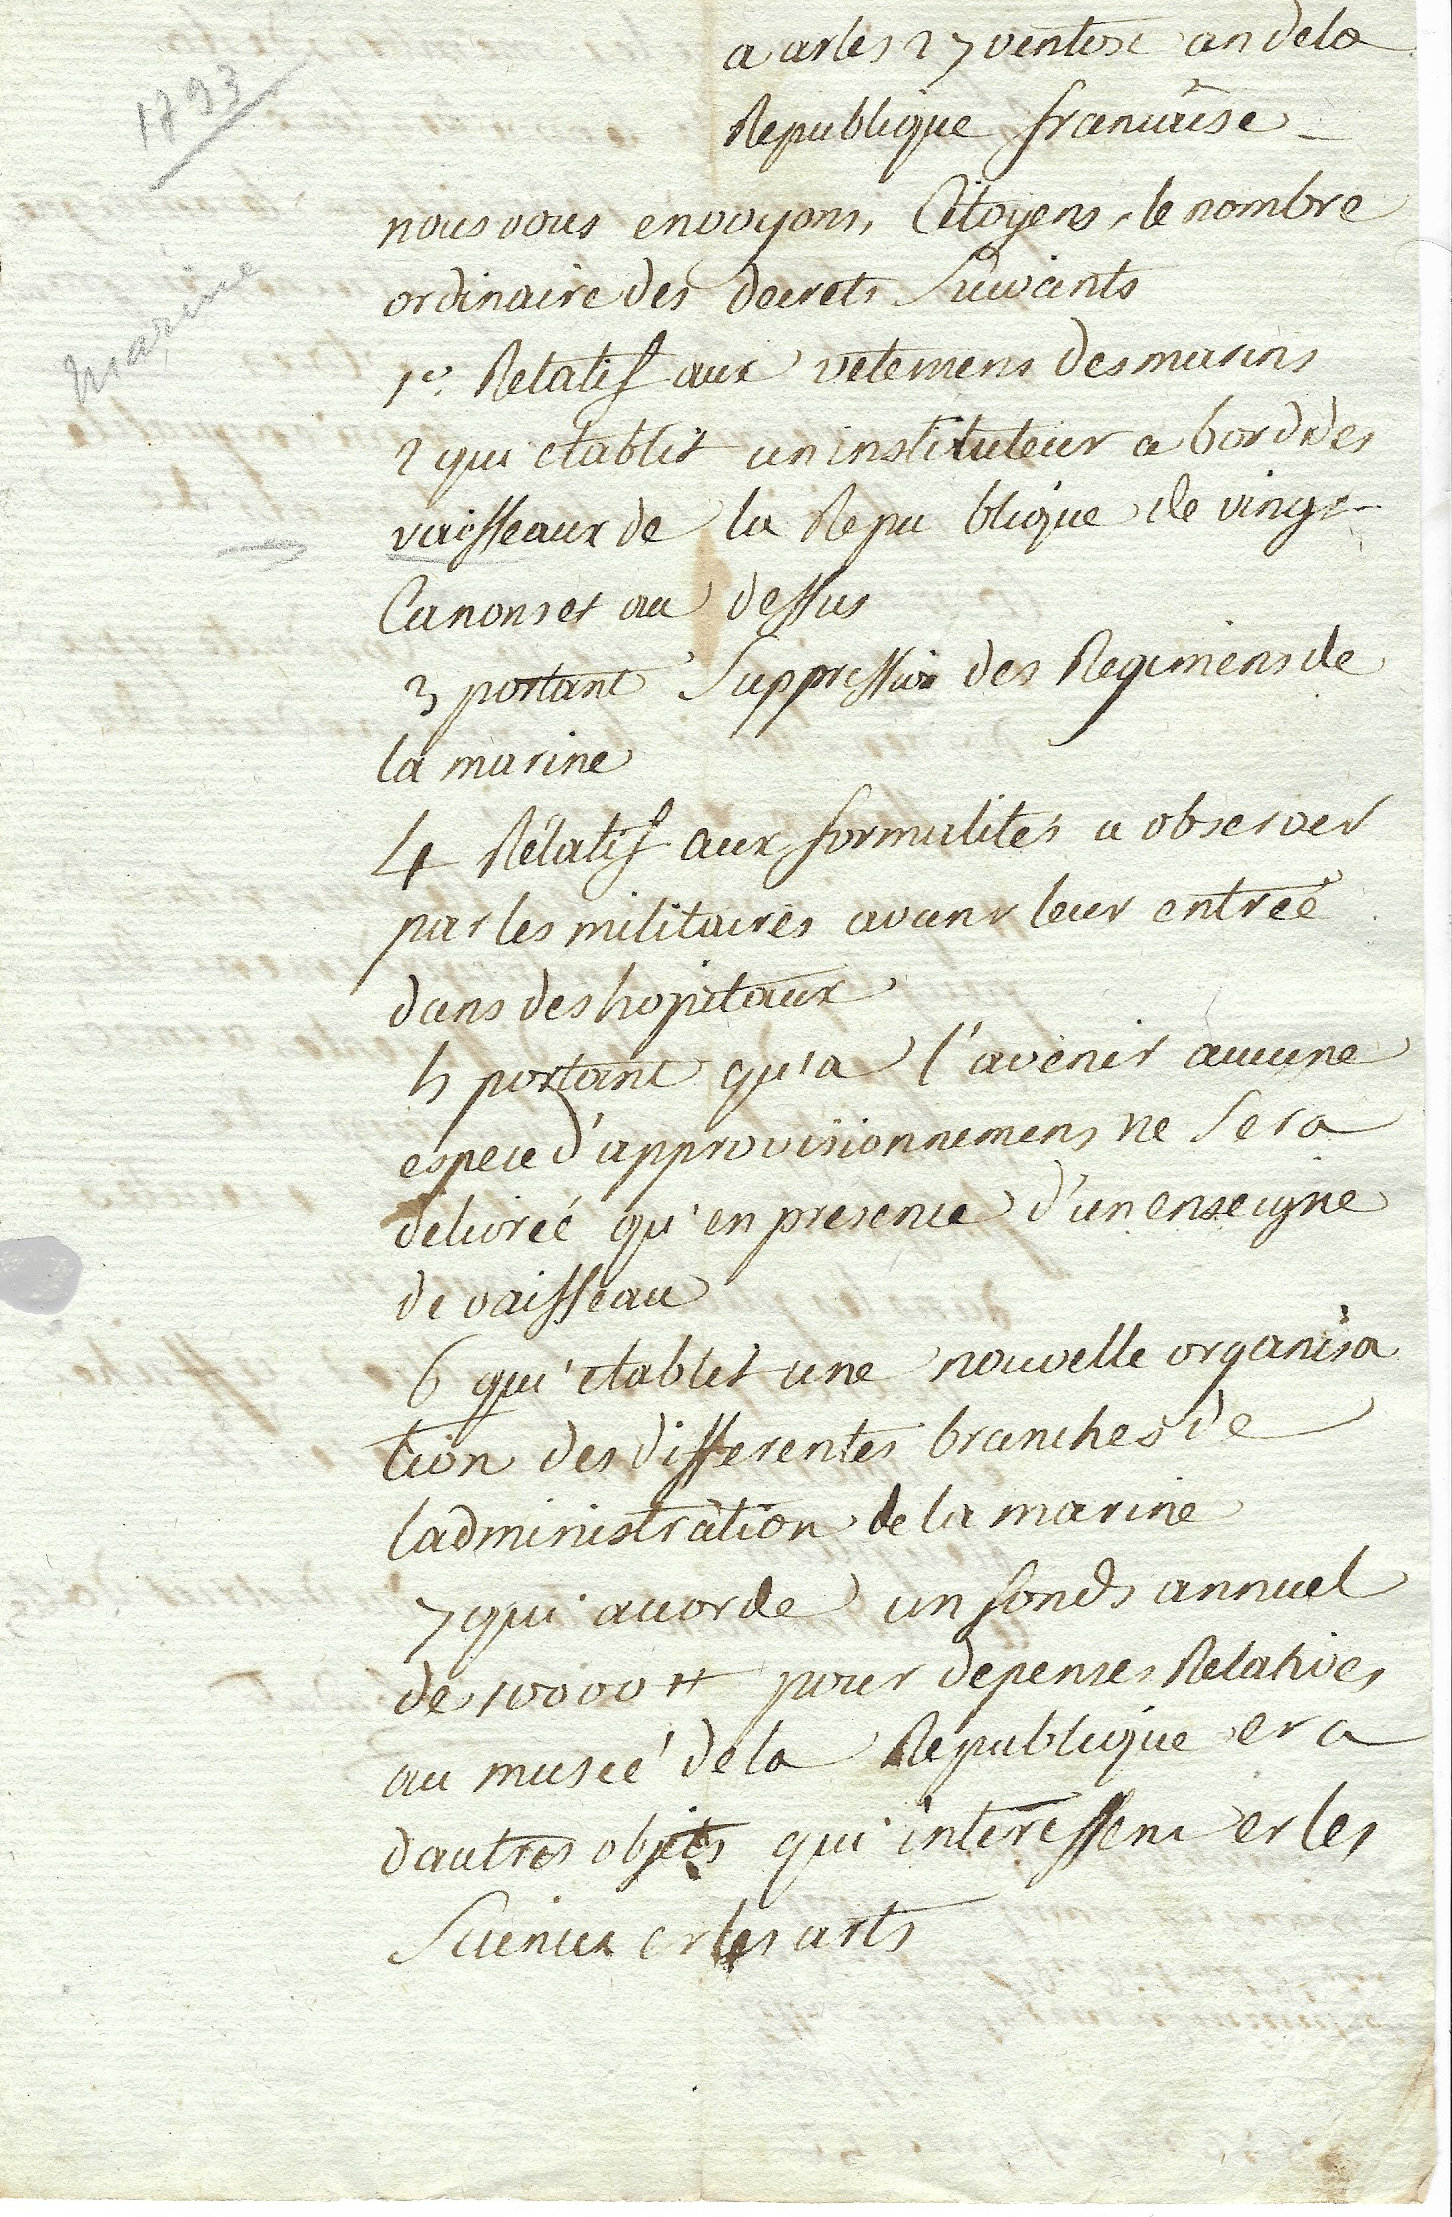 1793
marine
a arles 27 ventose an de la
Republique francaise
nous vous envoyons, Citoyens, le nombre
ordinaire des decrets Suivants
1º. Relatif aux vetemens des marins
2 qui etablit un instituteur a bord des
vaisseaux de la Republique de vingt
Canons et au dessus
3 portant Suppression des Regimens de
la marine
4 Rélatif aux formalités a observer
par les militaires avant leur entreé
dans des hopitaux
5 portant qu'a l'avenir aucune
espece d'approvisionnemens ne Sera
delivreé qu'en presence d'un enseigne
de vaisseau
6 qui etablit une nouvelle organisa
tion des differentes branches de
ladministration de la marine
7 qui accorde un fonds annuel
de 10000 ₶ pour depenses Relatives
au museé de la Republique et a
dautres objets qui interessent et les
Sciences et les arts